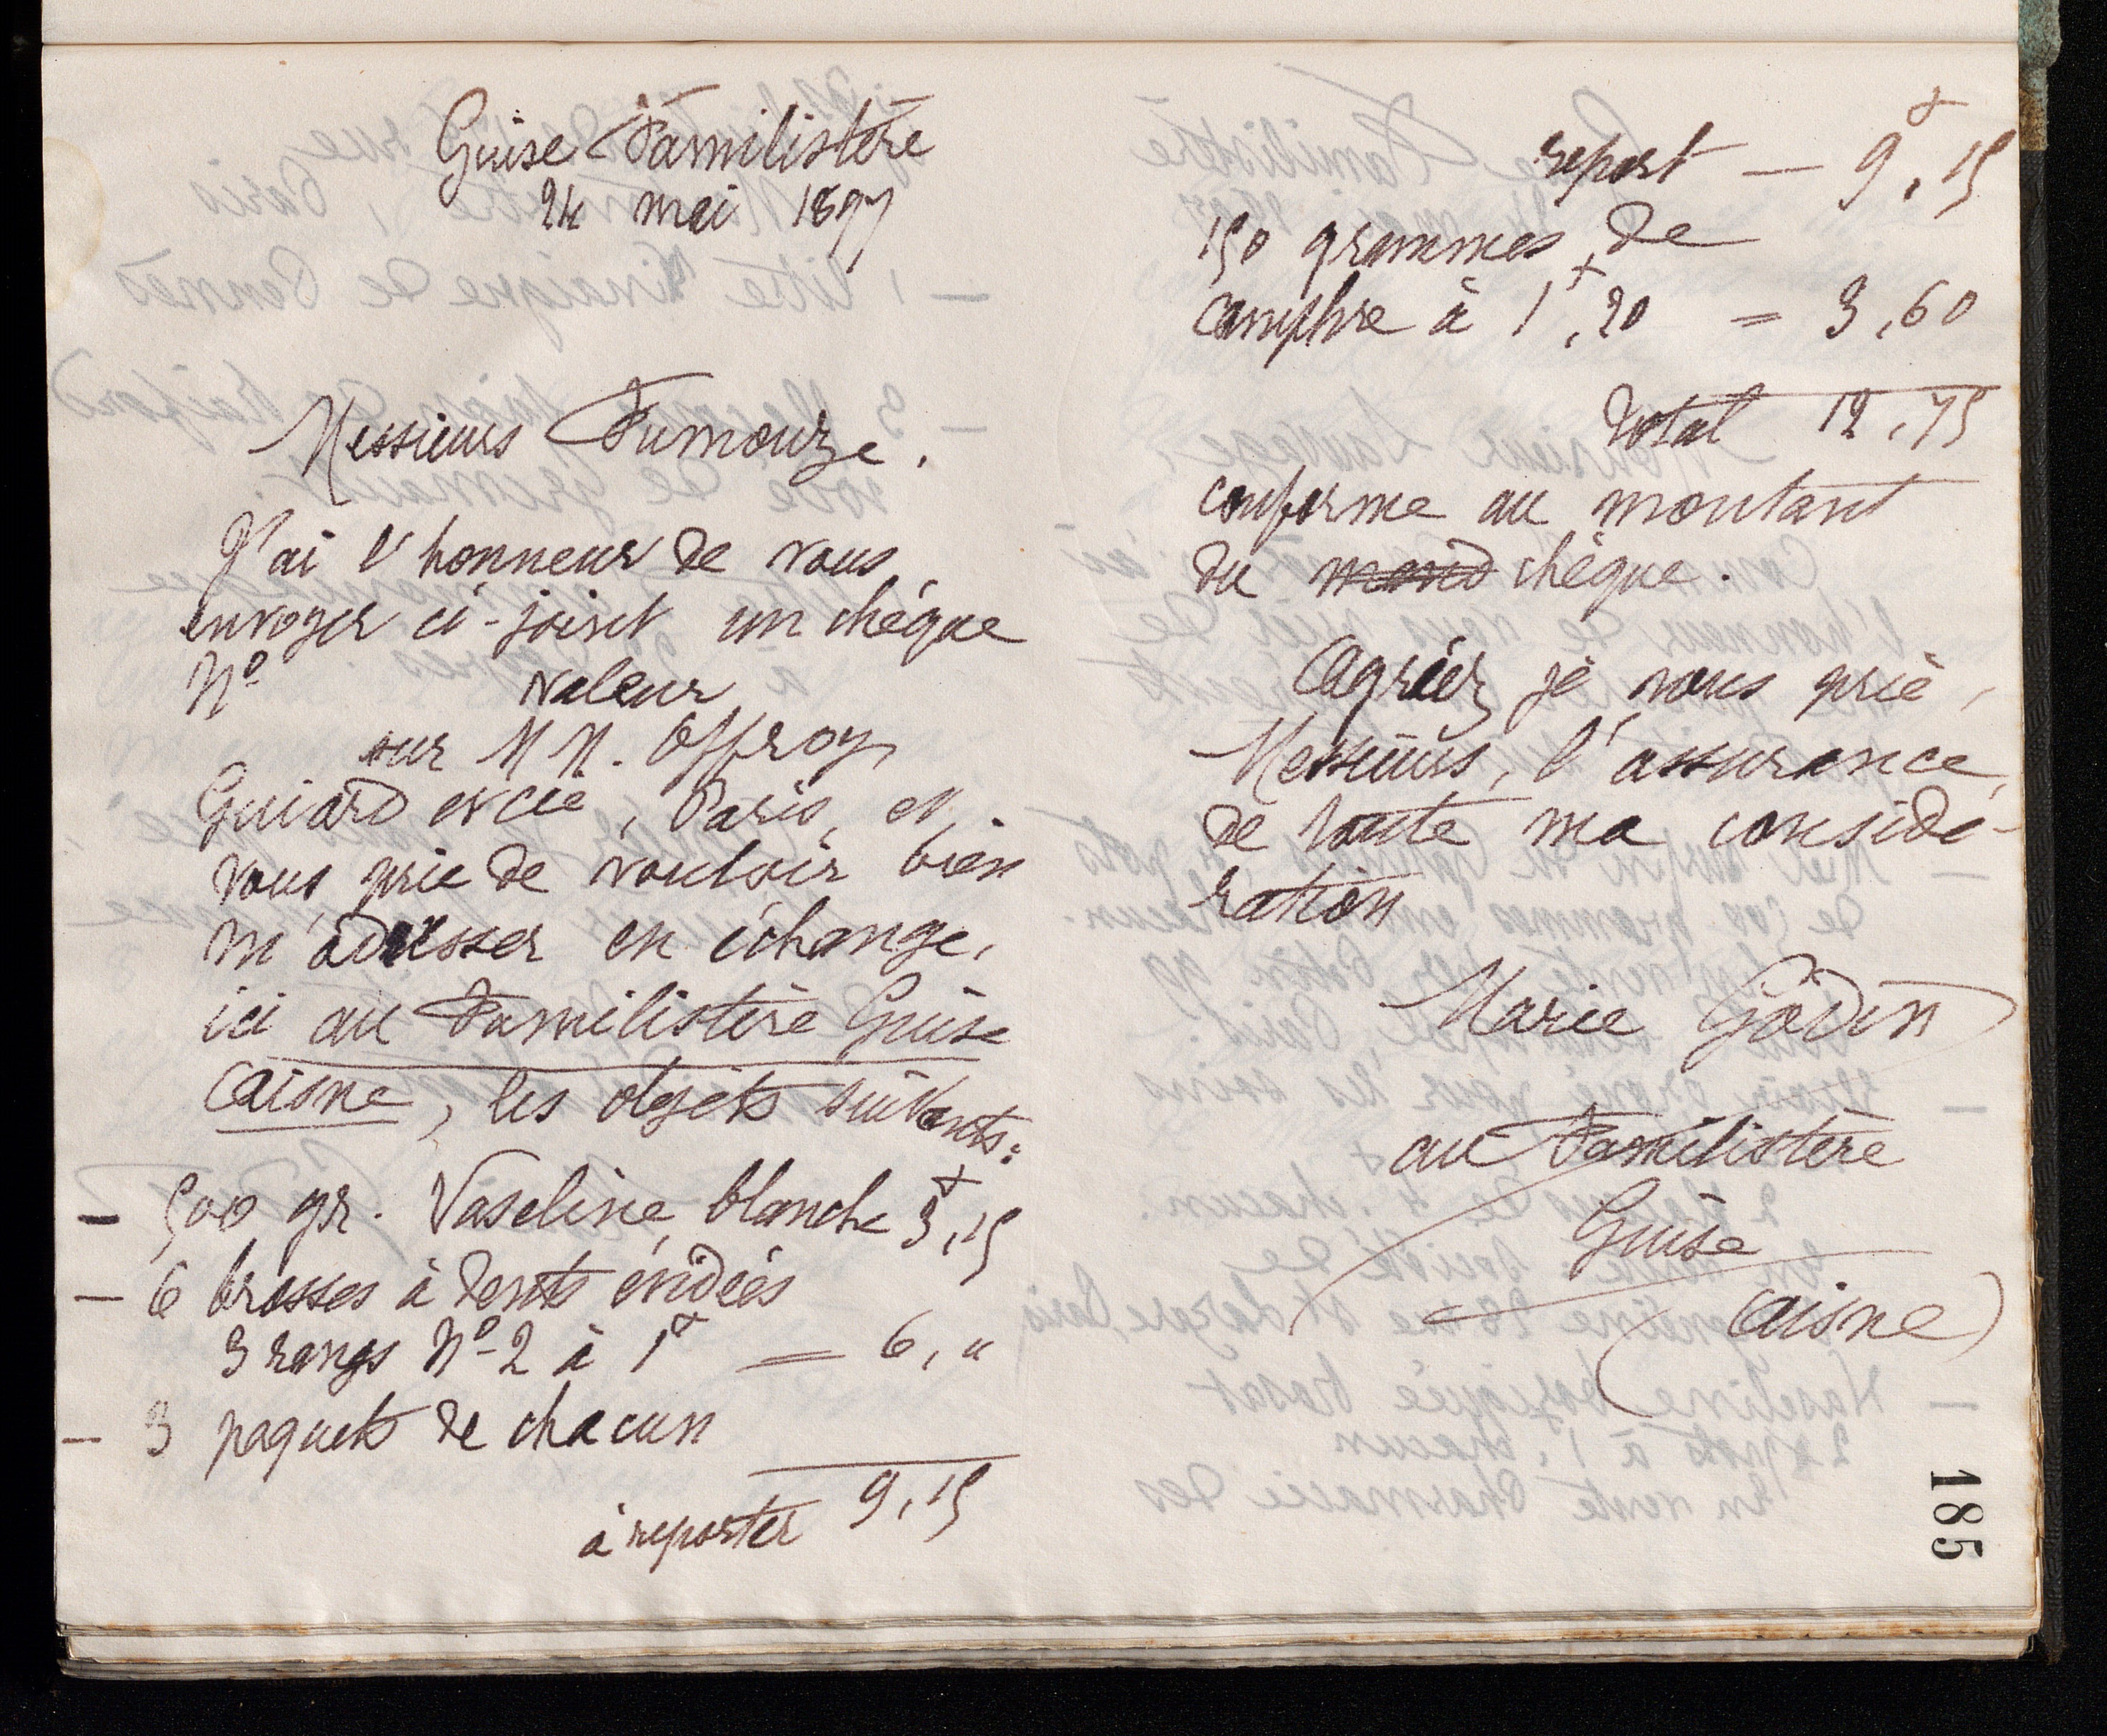 Guise Familistère
24 mai 1897
Messieurs Fumouze.
J'ai l'honneur de vous
envoyer ci-joint un chèque
Nº valeur
sur M M. Offroy
Guiard et cie, Paris, et
vous prie de vouloir bien
m'adresser en échange,
ici au Familistère Guise
Aisne, les objets suivants:
– 500 gr. Vaseline blanche 3f,15
– 6 brosses à dents évidées
3 rangs Nº 2 à 1f = 6, "
– 3 paquets de chacun
à reporter 9,15
report — 9f,15
150 grammes de
camphre à 1f,20 = 3,60
Total 12,75
conforme au montant
du mand chèque.
Agréez je vous prie,
Messieurs, l'assurance
de toute ma considé-
ration
Marie Godin
au Familistère
Guise
(Aisne)
185